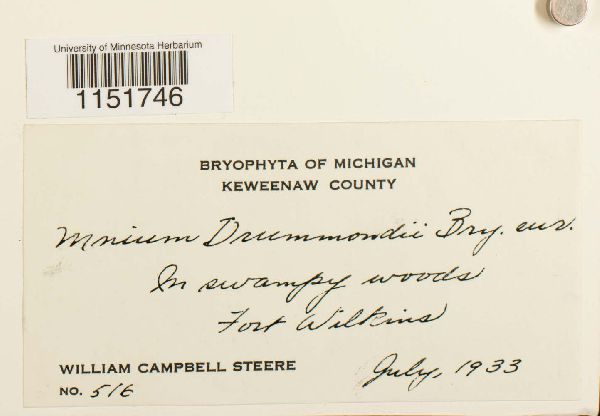 University of Minnesota Herbarium
1151746
BRYOPHYTA OF MICHIGAN
KEWEENAW COUNTY
Mnium Drummondii Bry. eur.
In swampy woods
Fort Wilkins
WILLIAM CAMPBELL STEERE July, 1933
NO. 516